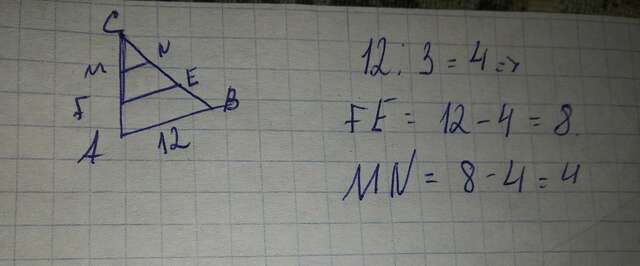 C
N
M
E
F
B
A
12
12 : 3 = 4 =>
FE = 12 - 4 = 8.
MN = 8 - 4 = 4